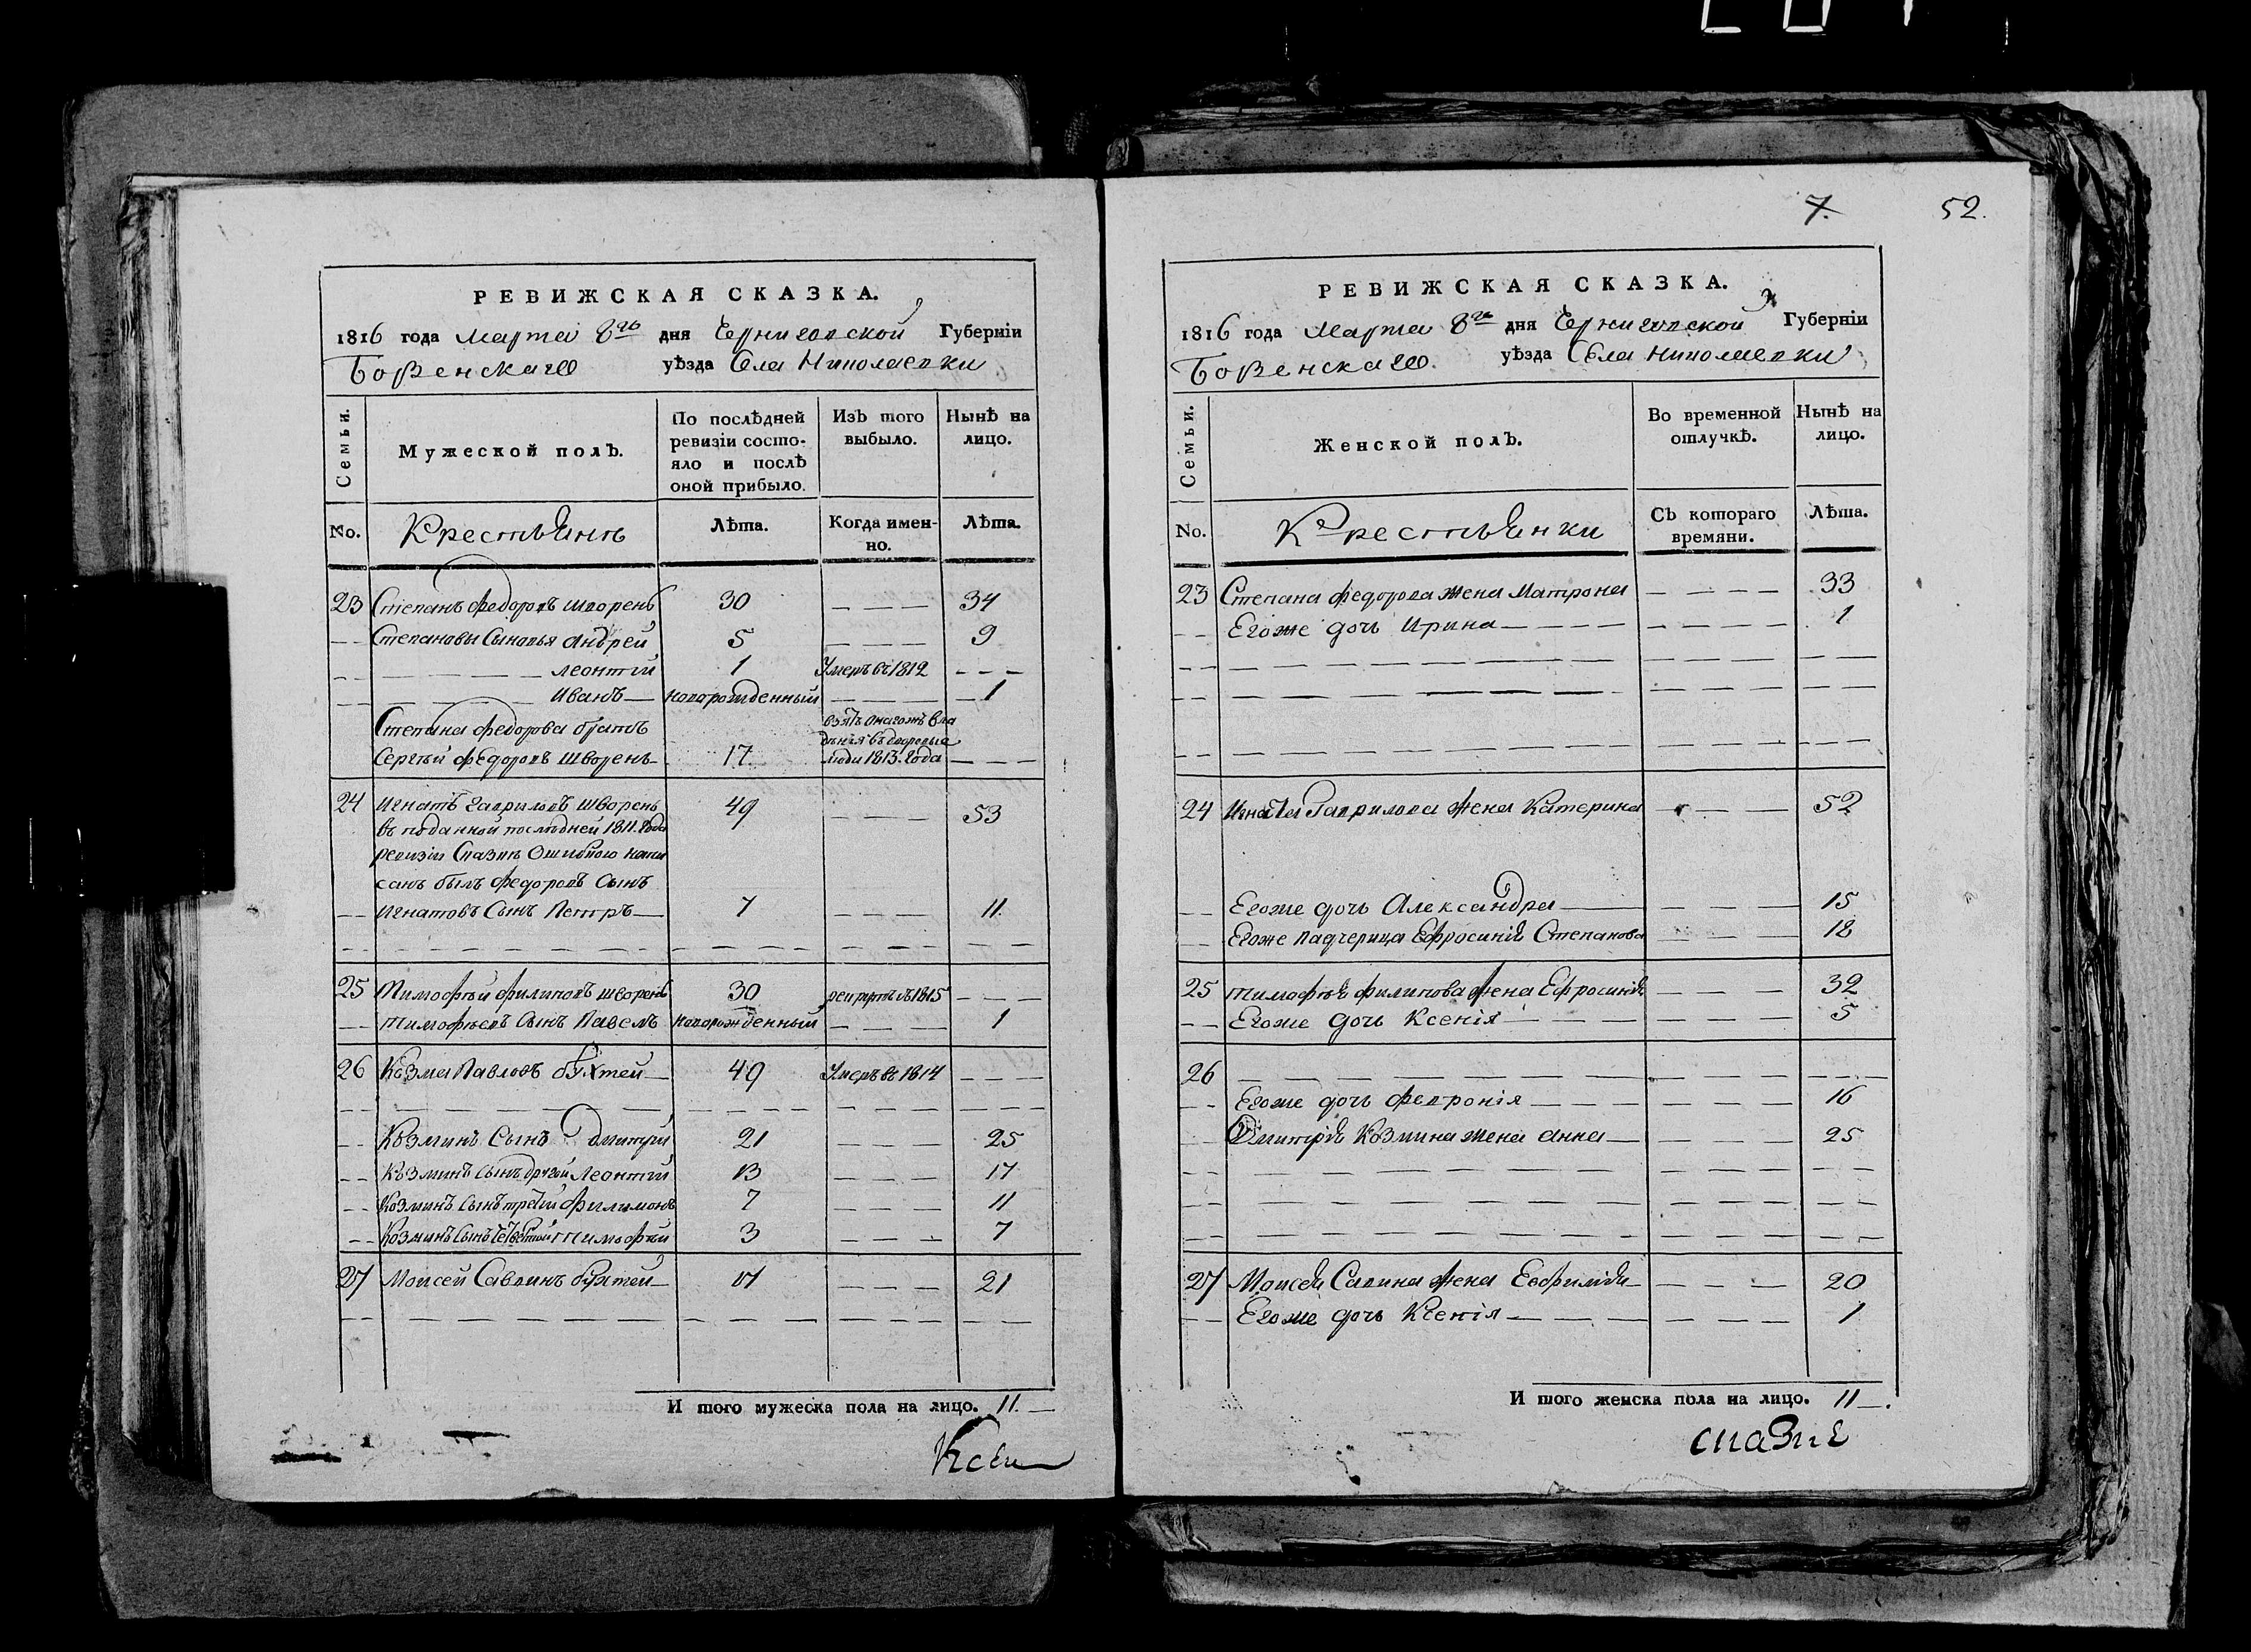 РЕВИЖСКАЯ СКАЗКА.
1816 года Марта 8го дня Черниговской Губерніи
Борзенскаго уѣзда Села Николаевки
Семьи.
Мужеской полъ.
По послѣдней ревизіи состо-
яло и послѣ
оной прибыло.
Изъ того
выбыло.
Нынѣ на
лицо.
No. Крестьянъ Лѣта. Когда имен-
но. Лѣта.
23 Степанъ Федоровъ шворень 30 — — — 34
— — Степановы Сыновья Андрей 5 — — — 9
— — — — — Леонтий 1 Умеръ въ 1812 — — —
— — — — Иванъ — новорожденный — — — 1
Степана Федорова братъ
Сергѣй Федоровъ шворень — 17 взятъ онагожъ вла
дѣнія въ дворовые
люди 1813. года — — —
24 Игнатъ Гавриловъ шворень 49 — — — 53
въ поданной последней 1811. года
ревизіи Сказкѣ Ошибкою напи
санъ былъ Федоровъ Сынъ
— — Игнатовъ Сынъ Петръ — 7 — — — 11.
25 Тимофѣй Филиповъ шворень 30 рекрутъ въ 1815 — — —
— — тимофѣевъ Сынъ Павелъ новорожденный — — — 1
26 Козма Павловъ бухтей — 49 Умеръ въ 1814 — — —
— — Козминъ Сынъ Дмитрій 21 — — — 25
— — Козминъ Сынъ другой Леонтий 13 — — — 17
— — Козминъ Сынъ третій Филимонъ 7 — — — 11
— — Козминъ Сынъ четвертый тимофѣй 3 — — — 7
27 Моисей Саввинъ бухтей — 17 — — — 21
И того мужеска пола на лицо. 11. —
Ксеи
7. 52.
РЕВИЖСКАЯ СКАЗКА.
1816 года Марта 8го дня Черниговской Губерніи
Борзенскаго. уѣзда Села Николаевки
Семьи.
Женской полъ.
Во временной
отлучкѣ.
Нынѣ на
лицо.
No. Крестьянки Съ котораго
времяни. Лѣта.
23 Степана Федорова жена Матрона — — — — 33
— — Егоже дочь Ирина — — — — 1
24 Игната Гаврилова жена Катерина — — — 52
— — Егоже дочь Александра — — — — 15
— — Егоже падчерица Ефросинія Степанова — — — 18
25 тимофѣя Филипова жена Ефросинія — — — 32
— — Егоже дочь Ксенія — — — — 5
26 — — — — — — —
— — Егоже дочь Февронія — — — — 16
— — Дмитрія Козмина жена анна — — — — 25
27 Моисея Савина жена Евфимія — — — — 20
— — Егоже дочь Ксенія — — — — 1
И того женска пола на лицо. 11 — .
сказке